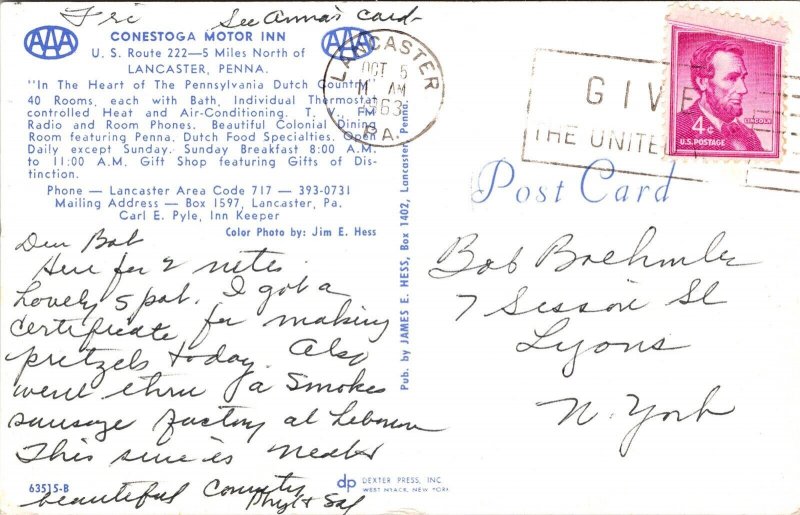 Fri See Anna's Card
AAA
CONESTOGA MOTOR INN
AAA
U. S. Route 222—5 Miles North of
LANCASTER, PENNA.
"In The Heart of The Pennsylvania Dutch Country"
40 Rooms, each with Bath, Individual Thermostat
controlled Heat and Air-Conditioning. T. V., FM
Radio and Room Phones. Beautiful Colonial Dining
Room featuring Penna. Dutch Food Specialties. Open
Daily except Sunday. Sunday Breakfast 8:00 A.M.
to 11:00 A.M. Gift Shop featuring Gifts of Dis-
tinction.
Phone — Lancaster Area Code 717 — 393-0731
Mailing Address — Box 1597, Lancaster, Pa.
Carl E. Pyle, Inn Keeper
Color Photo by: Jim E. Hess
Dear Bob
Here for 2 nites.
Lovely spot. I got a
certificate for making
pretzels today. Also
went thru a Smoke
sausage factory at Lebanon
This sure is
beautiful Country
Phyl & Sal
63515-B
Pub. by JAMES E. HESS, Box 1402, Lancaster, Penna.
dp DEXTER PRESS, INC.
WEST NYACK, NEW YORK
LANCASTER
OCT 5
AM
1963
PA.
GIVE
THE UNITED
4¢
LINCOLN
U.S. POSTAGE
Post Card
Bob Boehmler
7 Sisson St
Lyons
N. York